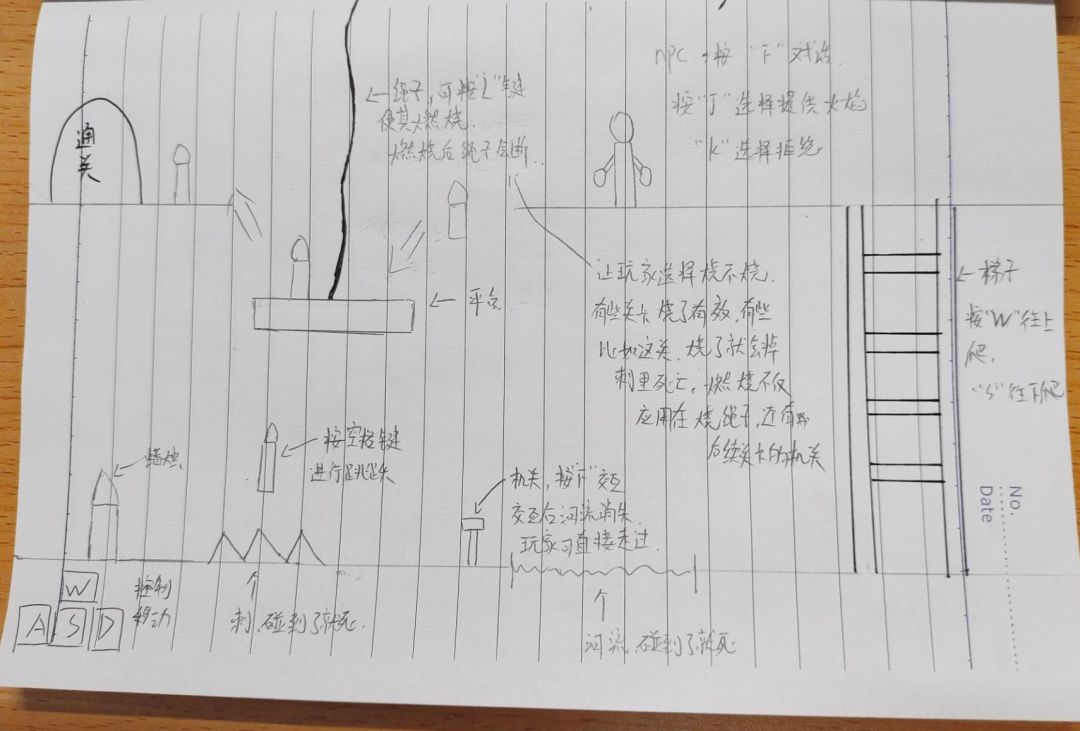 npc，按"F"对话
按"J"选择提供火焰
"K"选择拒绝
通关
绳子，可按"L"键
使其燃烧.
燃烧后绳子会断..
平台
让玩家选择烧不烧.
有些关卡烧了有效，有些
比如这关，烧了就会掉
刺里死亡，燃烧不仅
应用在烧绳子，还有
后续关卡的机关
梯子
按"W"往上
爬，
"S"往下爬
蜡烛
按空格键
进行跳跃
机关，按"F"交互
交互后河流消失
玩家可直接走过.
No.
Date
W
A S D
控制
移动
刺，碰到了就死.
河流，碰到了就死